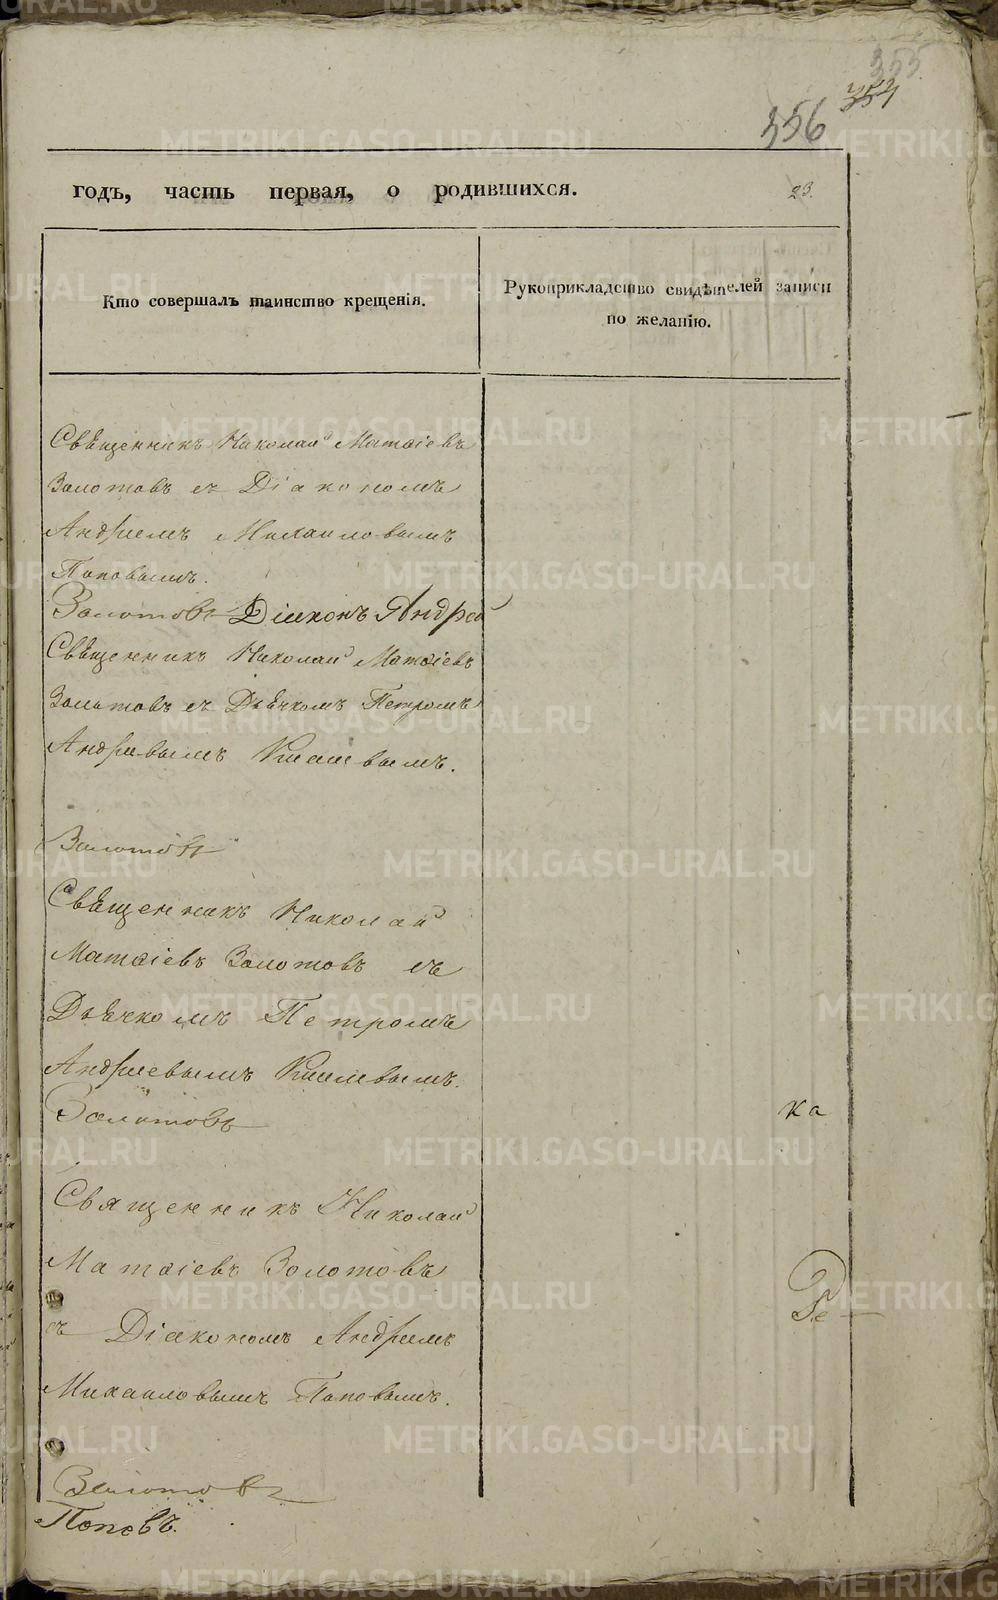 355
354
356
годъ, часть первая, о родившихся.
23.
Кто совершалъ таинство крещенія.
Рукоприкладство свидѣтелей записи
по желанію.
Свѣщенникъ Николай Матѳіевъ
Золотовъ съ Діакономъ
Андріемъ Михаиловымъ
Поповымъ.
Золотовъ Діяконъ Андрей
Свѣщенникъ Николай Матѳіевъ
Золотовъ съ Дьячкомъ Петромъ
Андріевымъ
Золотовъ
Свѣщенникъ Николай
Матѳіевъ Золотовъ съ
Дьячкомъ Петромъ
Андріевымъ
Золотовъ
ка
Священникъ Николай
Матѳіевъ Золотовъ
съ Діакономъ Андріемъ
Михаиловымъ Поповымъ.
Ре
Золотовъ
Поповъ.
METRIKI.GASO-URAL.RU